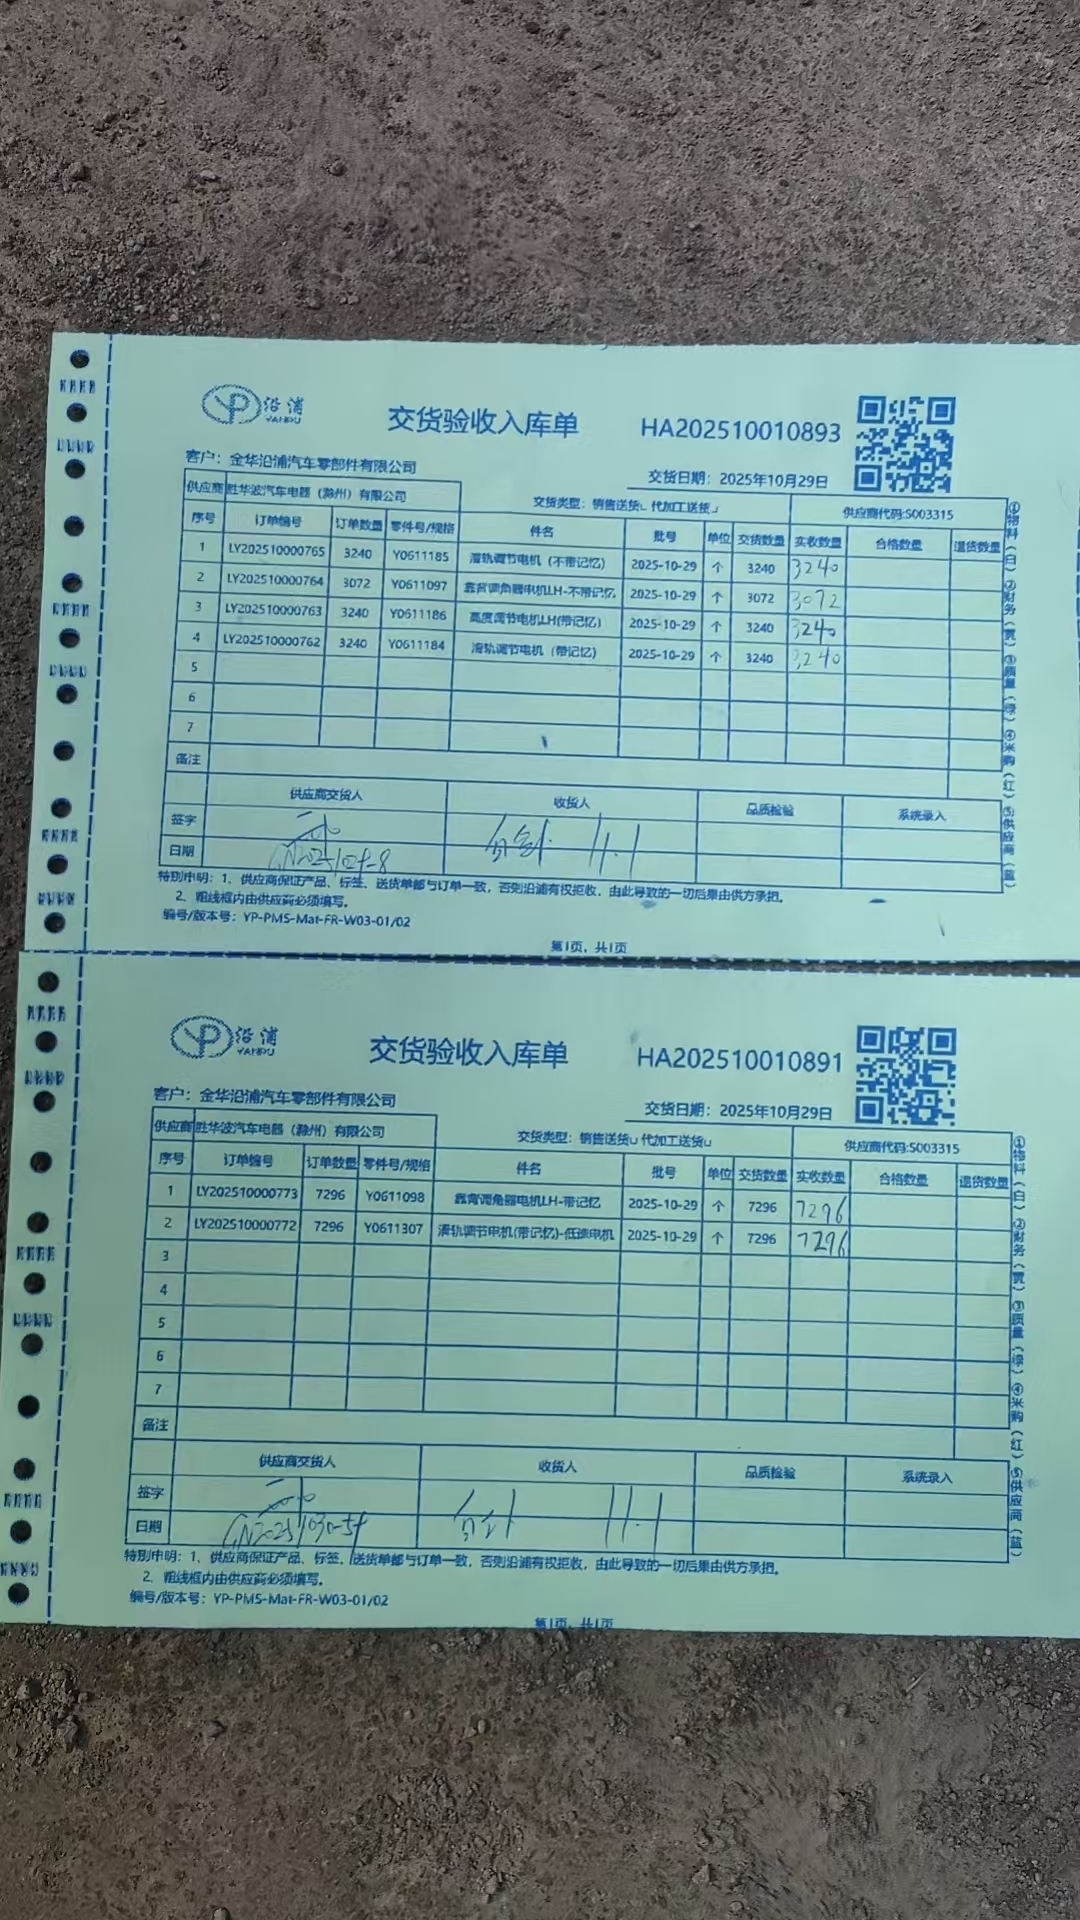 沿浦
YANPU
交货验收入库单
HA202510010893
客户：金华沿浦汽车零部件有限公司
交货日期：2025年10月29日
供应商 胜华波汽车电器（滁州）有限公司
交货类型：销售送货 代加工送货
供应商代码:S003315
序号 订单编号 订单数量 零件号/规格 件名 批号 单位 交货数量 实收数量 合格数量 退货数量
1 LY202510000765 3240 Y0611185 滑轨调节电机（不带记忆） 2025-10-29 个 3240 3240
2 LY202510000764 3072 Y0611097 靠背调角器电机LH-不带记忆 2025-10-29 个 3072 3072
3 LY202510000763 3240 Y0611186 高度调节电机LH(带记忆) 2025-10-29 个 3240 3240
4 LY202510000762 3240 Y0611184 滑轨调节电机（带记忆） 2025-10-29 个 3240 3240
5
6
7
备注
供应商交货人 收货人 品质检验 系统录入
签字
11.1
日期
特别申明：1、供应商保证产品、标签、送货单都与订单一致，否则沿浦有权拒收，由此导致的一切后果由供方承担。
2、粗线框内由供应商必须填写。
编号/版本号：YP-PMS-Mat-FR-W03-01/02
第1页，共1页
①物料（白）②财务（黄）③质量（绿）④采购（红）⑤供应商（蓝）
沿浦
YANPU
交货验收入库单
HA202510010891
客户：金华沿浦汽车零部件有限公司
交货日期：2025年10月29日
供应商 胜华波汽车电器（滁州）有限公司
交货类型：销售送货 代加工送货
供应商代码:S003315
序号 订单编号 订单数量 零件号/规格 件名 批号 单位 交货数量 实收数量 合格数量 退货数量
1 LY202510000773 7296 Y0611098 靠背调角器电机LH-带记忆 2025-10-29 个 7296 7296
2 LY202510000772 7296 Y0611307 滑轨调节电机(带记忆)-低速电机 2025-10-29 个 7296 7296
3
4
5
6
7
备注
供应商交货人 收货人 品质检验 系统录入
签字
11.1
日期
特别申明：1、供应商保证产品、标签、送货单都与订单一致，否则沿浦有权拒收，由此导致的一切后果由供方承担。
2、粗线框内由供应商必须填写。
编号/版本号：YP-PMS-Mat-FR-W03-01/02
第1页，共1页
①物料（白）②财务（黄）③质量（绿）④采购（红）⑤供应商（蓝）